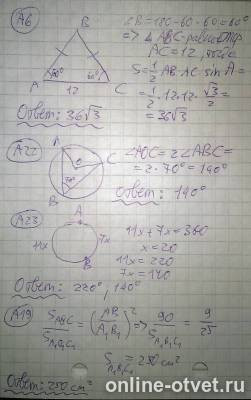 А6
B
A
60°
60°
12
C
∠B=180-60-60=60°
=> △ABC-равностор
AC=12, тогда
S=1/2 AB·AC·sin A=
=1/2·12·12·√3/2=
=36√3
Ответ: 36√3
А22
A
O
C
70°
B
∠AOC=2∠ABC=
=2·70°=140°
Ответ: 140°
А23
A
11x
7x
B
11x+7x=360
x=20
11x=220
7x=140
Ответ: 220°, 140°
А19
S_ABC/S_A₁B₁C₁=(AB/A₁B₁)² => 90/S_A₁B₁C₁=9/25
S_A₁B₁C₁=250 см²
Ответ: 250 см²
online-otvet.ru